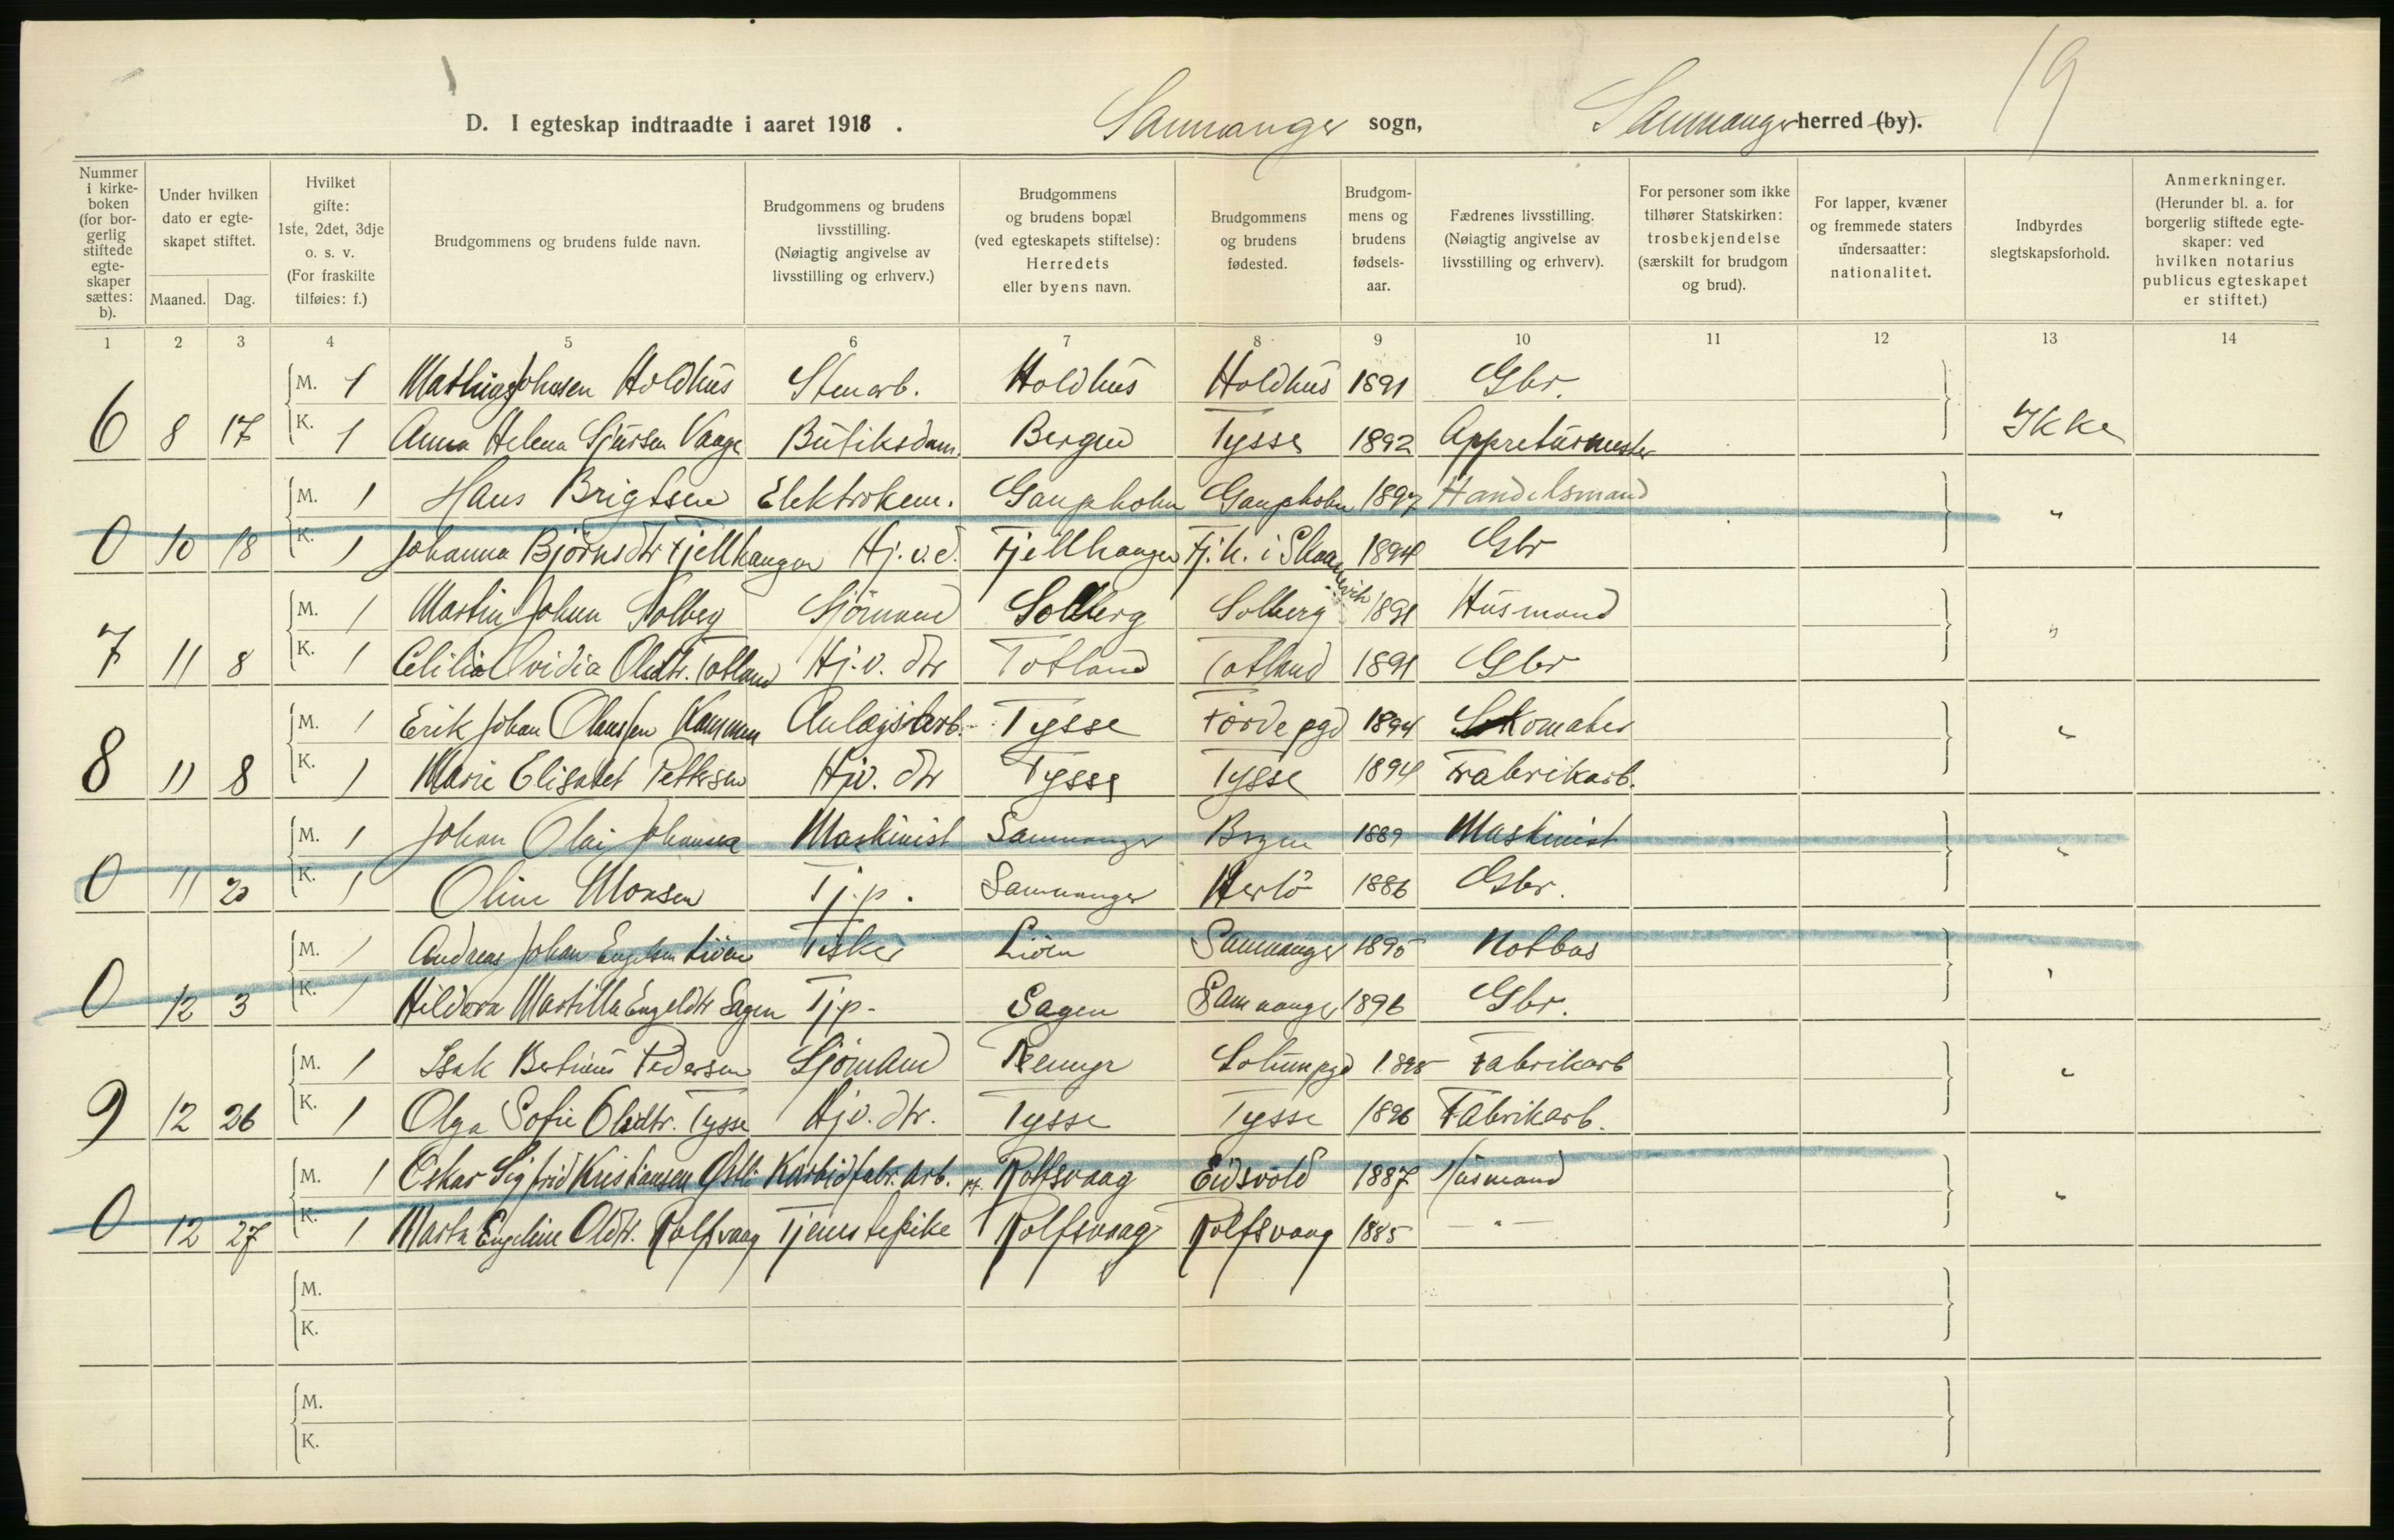 19
D. I egteskap indtraadte i aaret 1918. Samnanger sogn, Samnanger herred (by).
Nummer i kirkeboken (for borgerlig stiftede egteskaper sættes: b).
Under hvilken dato er egteskapet stiftet.
Maaned. Dag.
Hvilket gifte: 1ste, 2det, 3dje o. s. v. (For fraskilte tilføies: f.)
Brudgommens og brudens fulde navn.
Brudgommens og brudens livsstilling. (Nøiagtig angivelse av livsstilling og erhverv.)
Brudgommens og brudens bopæl (ved egteskapets stiftelse): Herredets eller byens navn.
Brudgommens og brudens fødested.
Brudgommens og brudens fødselsaar.
Fædrenes livsstilling. (Nøiagtig angivelse av livsstilling og erhverv).
For personer som ikke tilhører Statskirken: trosbekjendelse (særskilt for brudgom og brud).
For lapper, kvæner og fremmede staters undersaatter: nationalitet.
Indbyrdes slegtskapsforhold.
Anmerkninger. (Herunder bl. a. for borgerlig stiftede egteskaper: ved hvilken notarius publicus egteskapet er stiftet.)
1 2 3 4 5 6 7 8 9 10 11 12 13 14
M. 1 Mathias Johnsen Holdhus Stenarb. Holdhus Holdhus 1891 Gbr.
6 8 17 K. 1 Anna Helena Sjursen Vaage Butiksdam. Bergen Tysse 1892 Appreturmester Ikke
M. 1 Hans Brigtsen Elektrokem. Gaupholm Gaupholm 1897 Handelsmand "
0 10 18 K. 1 Johanna Bjørnsdtr Fjellhanger Hj. v. d. Fjellhanger Fj.h. i Skaanevik 1894 Gbr
M. 1 Martin Johan Solberg Sjömand Solberg Solberg 1891 Husmand "
7 11 8 K. 1 Celilia Ovidia Olsdtr. Totland Hj. v. dtr Totland Totland 1891 Gbr
M. 1 Erik Johan Olaussen Kammen Anlægsarb. Tysse Förde pgd 1894 Skomaker "
8 11 8 K. 1 Marie Elisabet Pettersen Hjv. dtr Tysse Tysse 1894 Fabrikarb.
M. 1 Johan Olai Johansen Maskinist Samnanger Bergen 1889 Maskinist "
0 11 20 K. 1 Oline Monsen Tj.p. Samnanger Herlö 1886 Gbr.
M. 1 Andreas Johan Engelsen Liöen Fisker Liöen Samnanger 1895 Notbas "
0 12 3 K. 1 Hildora Martilla Engelsdtr Sagen Tjp. Sagen Samnanger 1896 Gbr.
M. 1 Isak Bertinius Pedersen Sjömand Solumpgd 1895 Fabrikarb "
9 12 26 K. 1 Olga Sofie Olsdtr. Tysse Hjv. dtr. Tysse Tysse 1896 Fabrikarb.
M. 1 Oskar Sigfrid Kristiansen Østli Karbidfabr. arb. pt. Rolfsvaag Eidsvold 1887 Husmand "
0 12 27 K. 1 Marta Engeline Olsdtr. Rolfsvaag Tjenestepike Rolfsvaag Rolfsvaag 1885 — " —
M.
K.
M.
K.